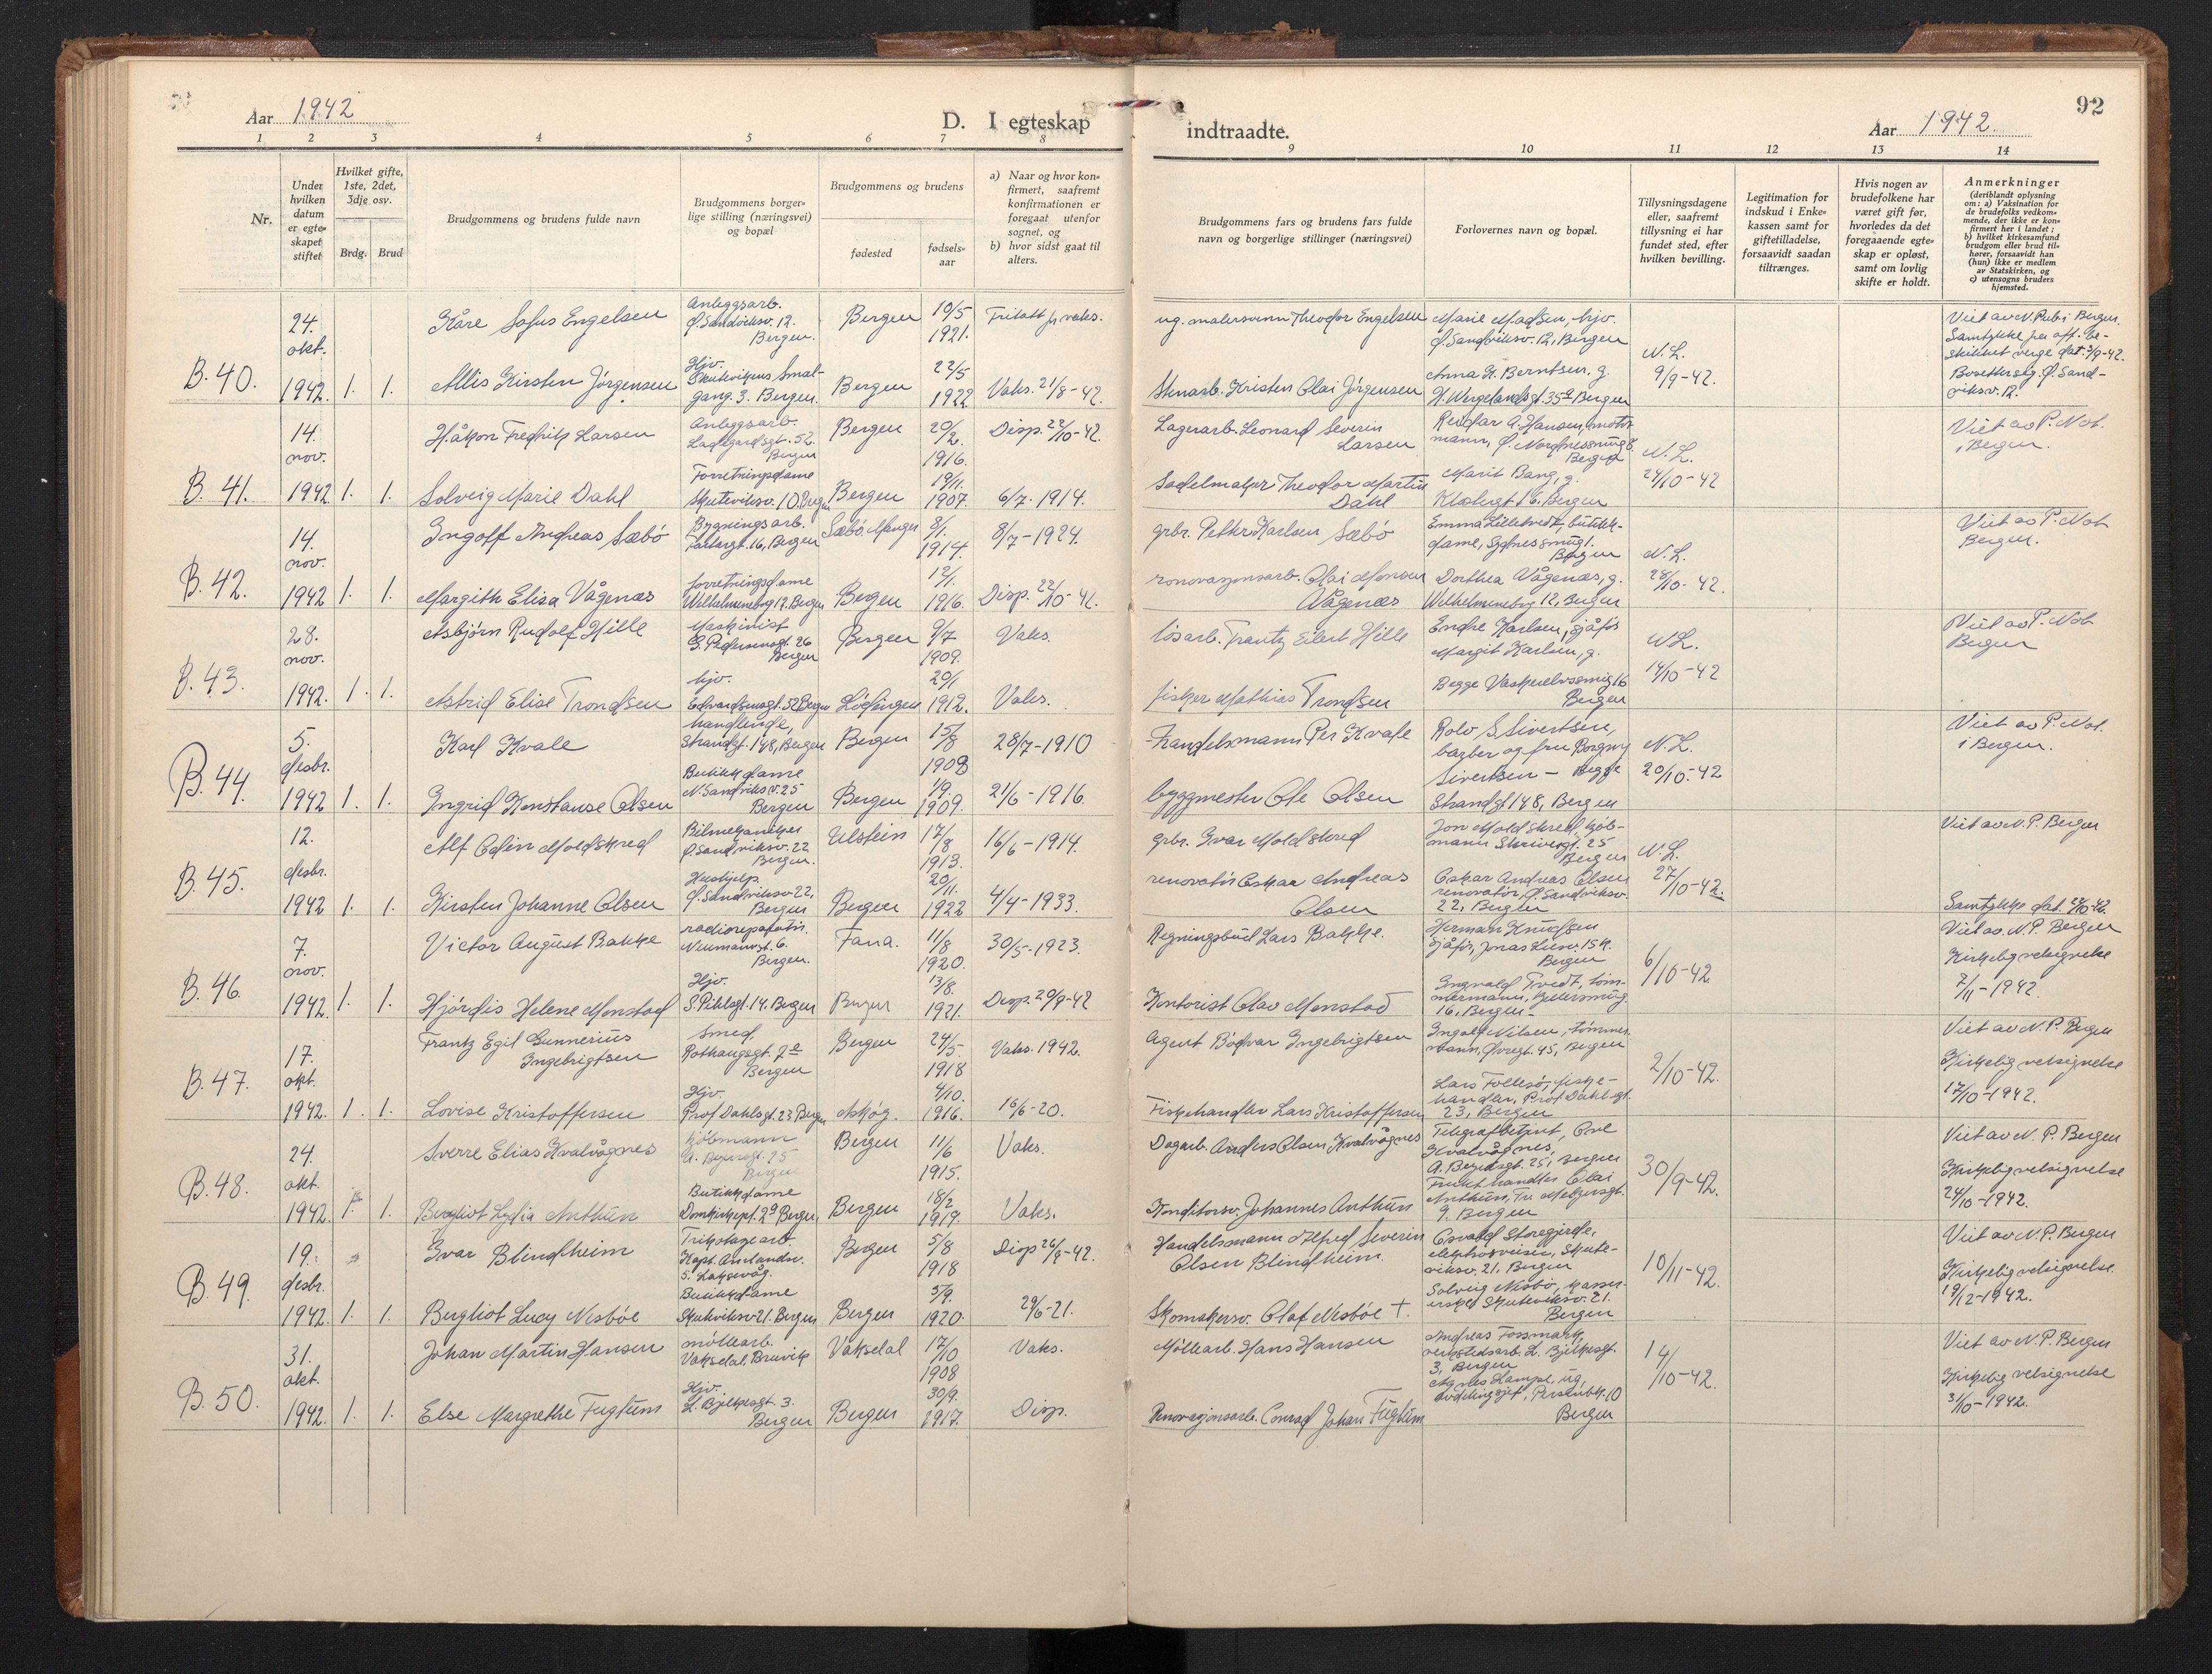 Aar 1942
D. I egteskap
indtraadte.
Aar 1942.
92
1 2 3 4 5 6 7 8 9 10 11 12 13 14
Nr.
Under hvilken datum er egteskapet stiftet
Hvilket gifte, 1ste, 2det, 3dje osv.
Brdg. Brud
Brudgommens og brudens fulde navn
Brudgommens borgerlige stilling (næringsvei) og bopæl
Brudgommens og brudens
fødested
fødselsaar
a) Naar og hvor konfirmert, saafremt konfirmationen er foregaat utenfor sognet, og
b) hvor sidst gaat til alters.
Brudgommens fars og brudens fars fulde navn og borgerlige stillinger (næringsvei)
Forlovernes navn og bopæl.
Tillysningsdagene eller, saafremt tillysning ei har fundet sted, efter hvilken bevilling.
Legitimation for indskud i Enkekassen samt for giftetilladelse, forsaavidt saadan tiltrænges.
Hvis nogen av brudefolkene har været gift før, hvorledes da det foregaaende egteskap er opløst, samt om lovlig skifte er holdt.
Anmerkninger
(deriblandt oplysning om: a) Vaksination for de brudefolks vedkommende, der ikke er konfirmert her i landet; b) hvilket kirkesamfund brudgom eller brud tilhører, forsaavidt han (hun) ikke er medlem av Statskirken, og c) utensogns bruders hjemsted.
B. 40. 24. okt. 1942. 1. 1.
Kåre Sofus Engelsen
Anleggsarb. Ø. Sandviksv. 12. Bergen.
Bergen 10/5 1921.
Fritatt for vaks.
ug. malersvenn Theodor Engelsen
Marie Madsen, hjv. Ø. Sandviksv. 12, Bergen
N.L. 9/9-42.
Allis Kirsten Jörgensen
Hjv. Skutevikens Smalgang 3. Bergen.
Bergen 22/5 1922
Vaks. 21/8-42.
Stenarb. Kristen Olai Jörgensen
Anna K. Berntsen, g. H. Wergelandsgt. 35a Bergen
Viet av N. Pub. i Bergen. Samtykke fra off. beskikket verge dat. 3/9-42. Bosetter seg Ø. Sandviksv. 12.
B. 41. 14. nov. 1942 1. 1.
Håkon Fredrik Larsen
Anleggsarb. Ladegårdsgt. 52. Bergen
Bergen 20/2. 1916.
Disp. 22/10-42.
Lagerarb. Leonard Severin Larsen
Reidar A. Hansen, motormann, Ø. Nordnessmug 8. Bergen
N.L. 24/10-42
Solveig Marie Dahl
Forretningsdame Skuteviksv. 10. Bergen
Bergen 19/11. 1907.
6/7. 1914.
Sadelmaker Theodor Martin Dahl
Marit Bang, g. Klostergt 16. Bergen
Viet av P. Not. i Bergen.
B. 42. 14. nov. 1942 1. 1.
Ingolf Andreas Sæbö
Bygningsarb. Bergen
Sæbö. Manger 8/1. 1914.
8/7-1924.
grbr. Petter Karlsen Sæbö
Emma Lilletvedt, butikkdame, Sydnessmug 1. Bergen
N.L. 28/10-42.
Margith Elisa Vågenæs
forretningsdame Wilhelmineborg 12. Bergen
Bergen 12/1. 1916.
Disp. 22/10-42.
renovasjonsarb. Olai Monsen Vågenæs
Dorthea Vågenæs, g. Wilhelmineborg 12, Bergen
Viet av P. Not Bergen.
B. 43. 28. nov. 1942. 1. 1.
Asbjörn Rudolf Hille
Maskinist G. Pedersensgt. 26 Bergen
Bergen 9/7 1909.
Vaks.
lösarb. Frantz Eilert Hille
Endre Karlsen, sjåför Margit Karlsen, g.
N.L. 14/10-42
Astrid Elise Trondsen
hjv. Edvardsensgt. 52 Bergen
Lödingen 20/1 1912.
Vaks.
fisker Mathias Trondsen
Begge Vaskerelvssmug 16 Bergen
Viet av P. Not Bergen
B. 44. 5. desbr. 1942 1. 1.
Karl Kvale
handlende, Strandgt. 148, Bergen
Bergen 15/8 1908
28/7-1910
Handelsmann Per Kvale
Rolv S Sivertsen, barber og fru Borgny Sivertsen - Begge Strandgt 148, Bergen
N.L. 20/10.-42
Ingrid Konstanse Olsen
Butikkdame N. Sandviksv. 25 Bergen
Bergen 1/9. 1909.
21/6-1916.
byggmester Ole Olsen
Viet av P. Not. i Bergen.
B. 45. 12. desbr. 1942 1. 1.
Alf Odin Moldskred
Bilmekaniker Ø. Sandviksv. 22 Bergen.
Ulstein 17/8 1913.
16/6-1914.
grbr. Ivar Moldskred
Jon Moldskred, kjöbmann Skivergt. 25 Bergen
N.L. 27/10-42.
Kirsten Johanne Olsen
Hushjelp. Ø. Sandviksv 22, Bergen
Bergen 20/11. 1922
4/4-1933.
renovatör Oskar Andreas Olsen
Oskar Andreas Olsen renovatör, Ø. Sandviksv. 22, Bergen
Viet av N. P. Bergen
Samtykke dat. 27/10-42.
B. 46. 7. nov. 1942 1. 1.
Victor August Bakke
radioreparatör. Neumannsgt. 6. Bergen.
Fana. 11/8 1920.
30/5-1923.
Regningsbud Lars Bakke.
Herman Knudsen sjåför, Jonas Liesv. 15 K. Bergen
6/10-42
Hjördis Helene Monstad
Hjv. S. Pihlsgt. 14. Bergen
Bergen 13/8. 1921.
Disp. 29/9-42
Kontorist Olav Monstad
Ingvald Tvedt, tömmermann, Kjellersmug. 16, Bergen-
Viet av. N. P. Bergen Kirkelig velsignelse 7/11-1942.
B. 47. 17. okt. 1942. 1. 1.
Frantz Egil Gunnerius Ingebrigtsen
Smed, Rothaugsgt. 7a Bergen
Bergen 24/5. 1918
Vaks. 1942.
Agent Bödvar Ingebrigtsen
Ingolf Nilsen, tömmermann, Øvregt. 45, Bergen
2/10-42.
Lovise Kristoffersen
Hjv. Prof Dahlsgt. 23 Bergen
Askög. 4/10. 1916.
16/6-20.
Fiskehandler Lars Kristoffersen
Lars Follesö, fiskehandler, Prof Dahlsgt. 23, Bergen
Viet av N. P. Bergen Kirkelig velsignelse 17/10-1942.
B. 48. 24. okt. 1942. 1. 1.
Sverre Elias Kvalvågnes
kjöbmann A. Beyersgt. 25 Bergen
Bergen 11/6 1915.
Vaks.
Dagarb. Anders Olsen Kvalvågnes
Telegrafbetjent, Kvalvågnes, A. Beyersgt. 25, Bergen
30/9-42.
Bergliot Lydia Anthun
Butikkdame Domkirkepl. 2a Bergen,
Bergen 18/2 1919.
Vaks.
Konditorsv. Johannes Anthun
Frukthandler Olai Anthun, Bergen
Viet av N. P. Bergen Kirkelig velsignelse 24/10-1942.
B. 49. 19. desbr. 1942. 1. 1.
Ivar Blindheim
Trikotagearb. Kapt. Amlandsv. 5. Laksevåg.
Bergen 5/8 1918
Disp 26/9-42.
Handelsmann Alfred Severin Olsen Blindheim.
Osvald Storegjerde, Skuteviksv. 21, Bergen
10/11-42.
Bergliot Lucy Nesböe
Butikkdame Skuteviksv 21. Bergen
Bergen 5/9. 1920.
29/6-21.
Skomakersv. Olaf Nesböe †.
Solveig Nesbö, kassererske Skuteviksv. 21. Bergen
Viet av N. P. Bergen Kirkelig velsignelse. 19/12-1942.
B. 50. 31. okt. 1942. 1. 1.
Johan Martin Hansen
möllearb. Vaksdal, Bruvik
Vaksdal 17/10 1908
Vaks.
Möllearb. Hans Hansen
Andreas Fossmark, verkstedsarb. L. Bjelkesgt. 3, Bergen
14/10-42.
Else Margrethe Fugtum
Hjv. L. Bjelkesgt. 3. Bergen
Bergen 30/9. 1917.
Disp.
Renovasjonsarb. Conrad Johan Fugtum
Agnes Lampe, ug, Bergen
Viet av N. P. Bergen Kirkelig velsignelse 31/10-1942.